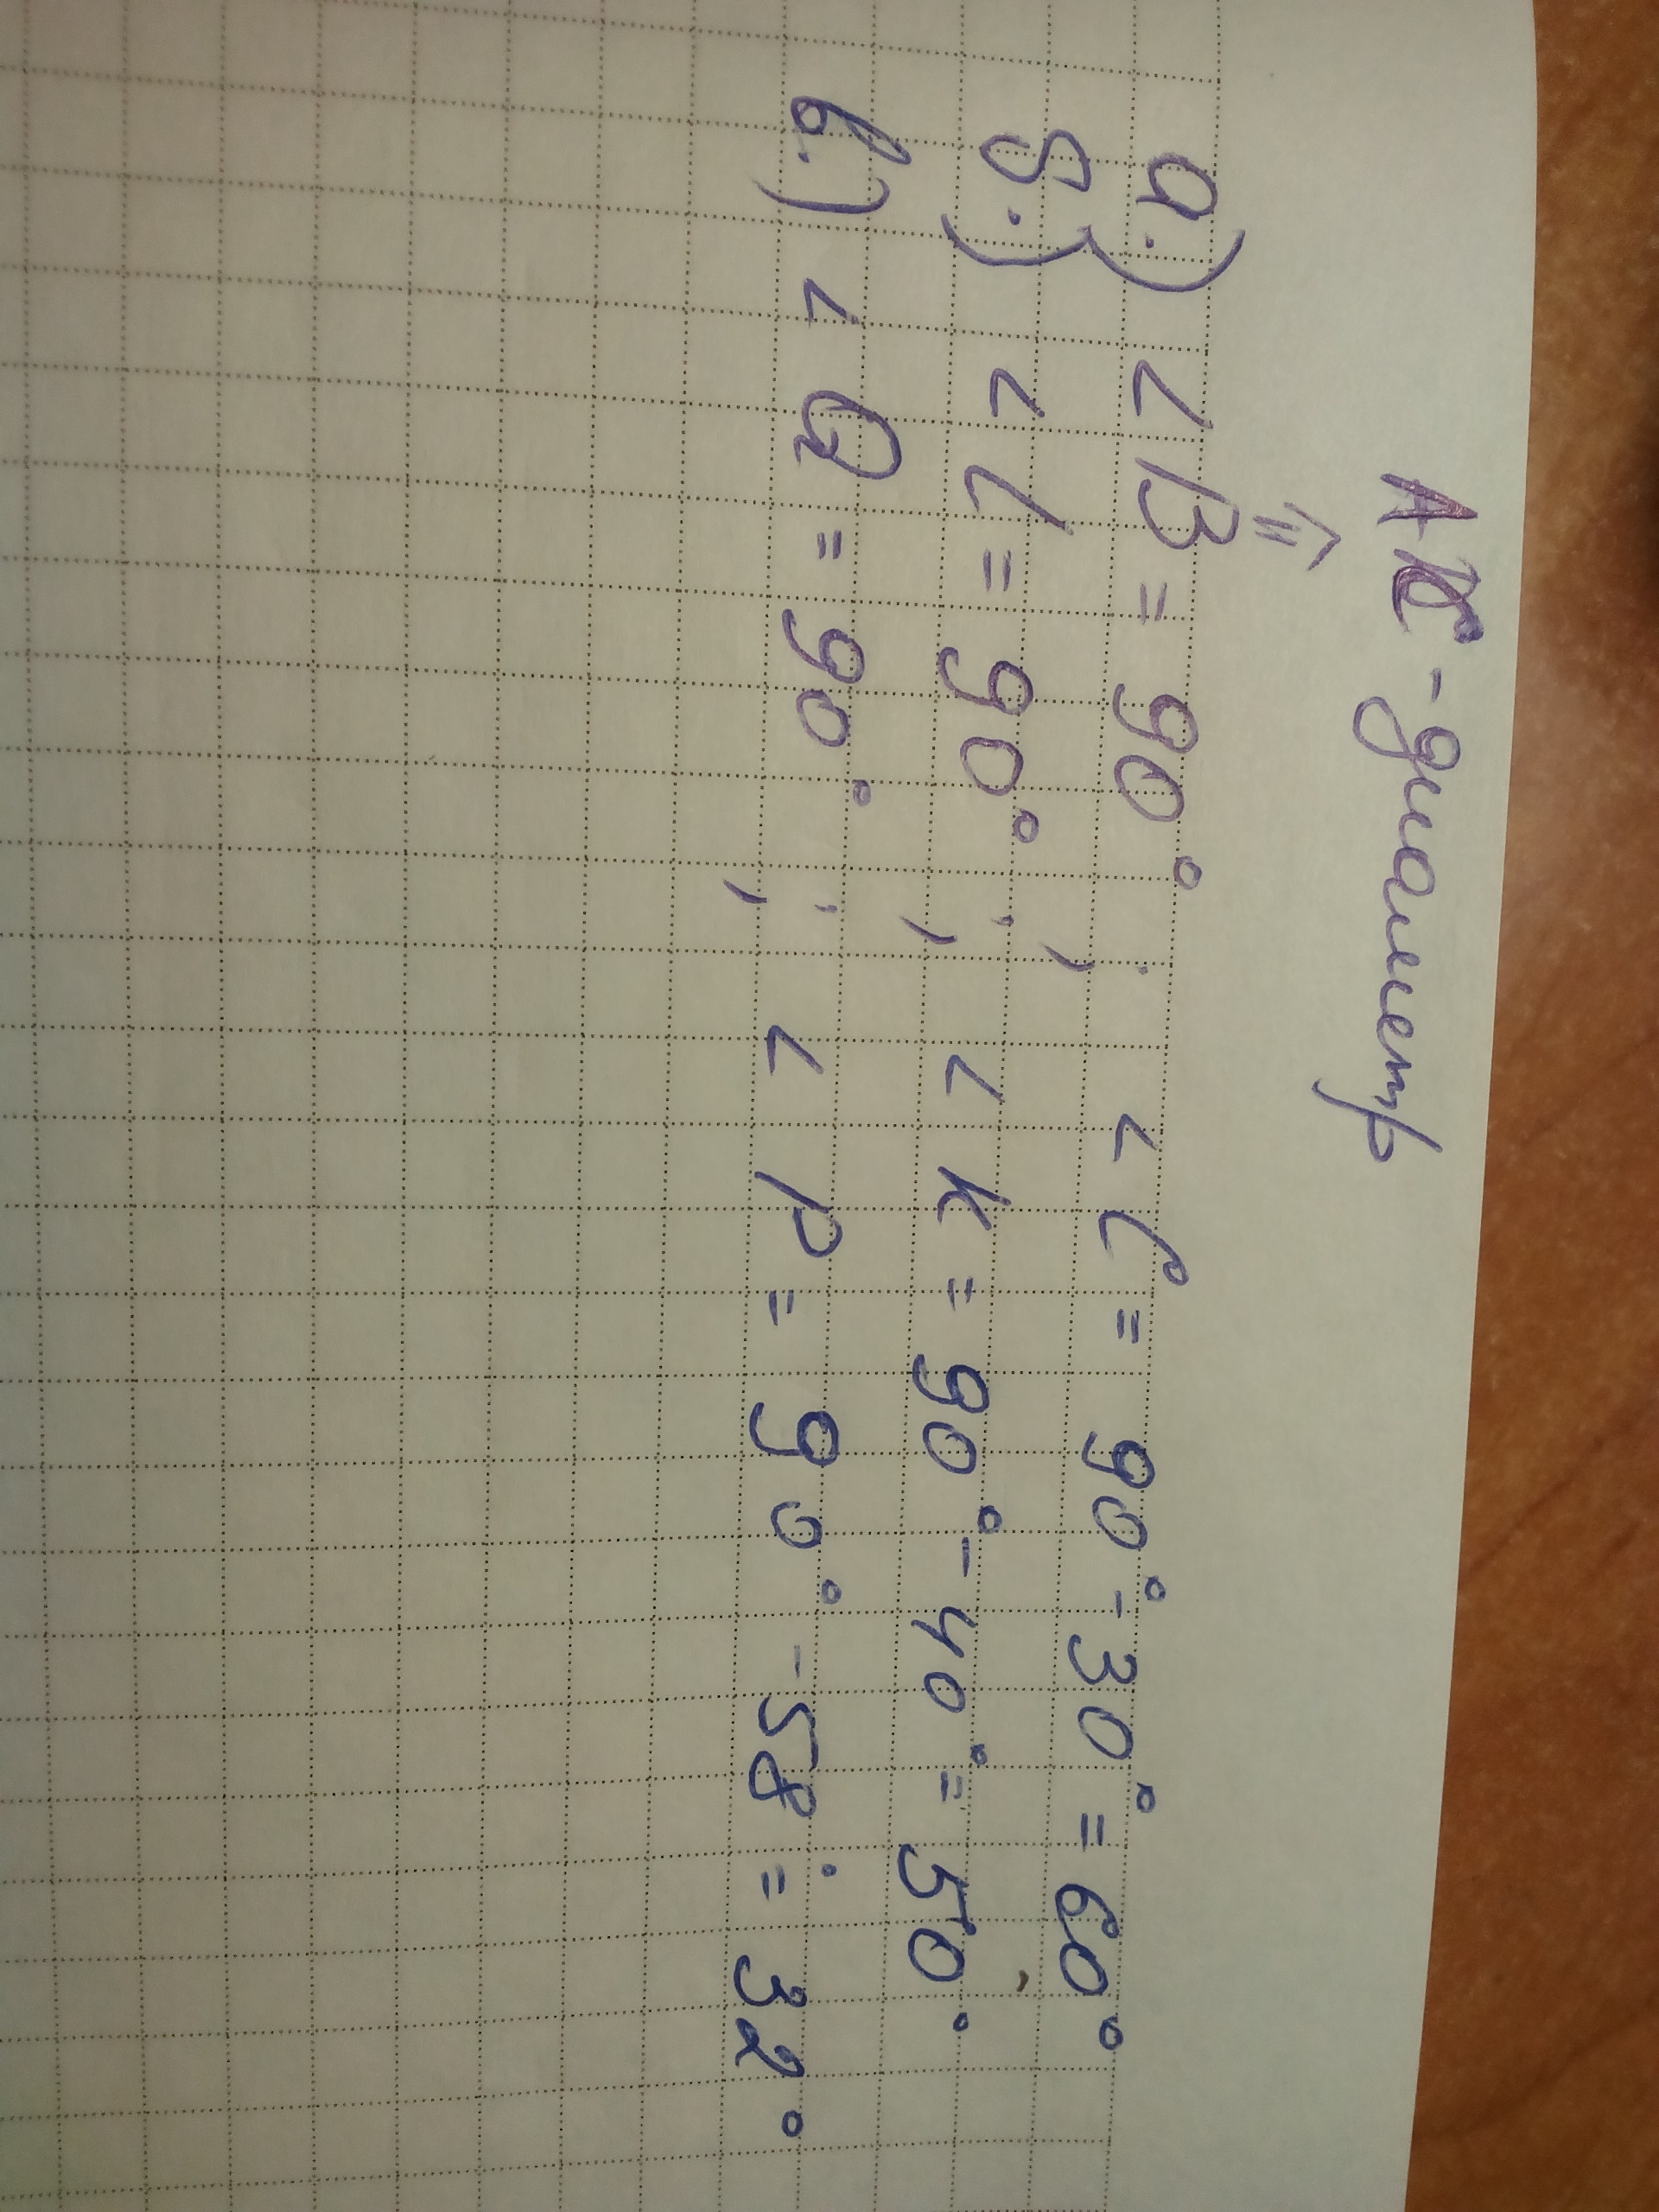 АС - диаметр
=>
а.) ∠B = 90°; ∠C = 90° - 30° = 60°
б.) ∠L = 90°; ∠K = 90° - 40° = 50°
в.) ∠Q = 90°; ∠P = 90° - 58° = 32°